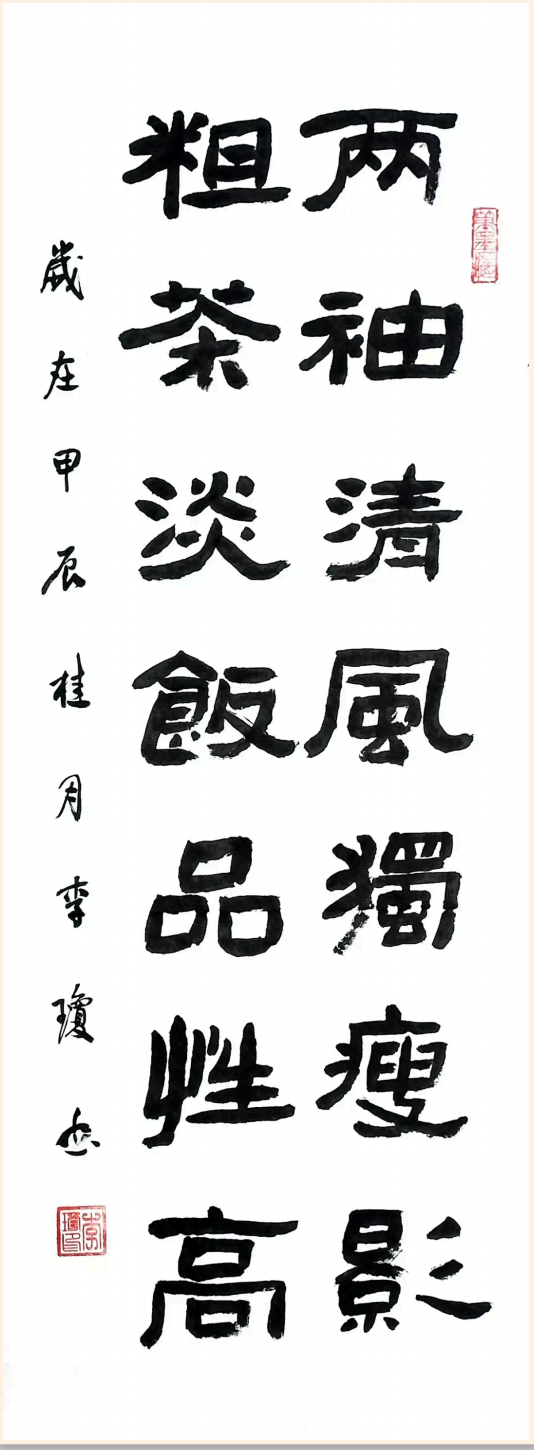 两袖清风獨瘦影
粗茶淡飯品性高
歲在甲辰桂月李瓊书